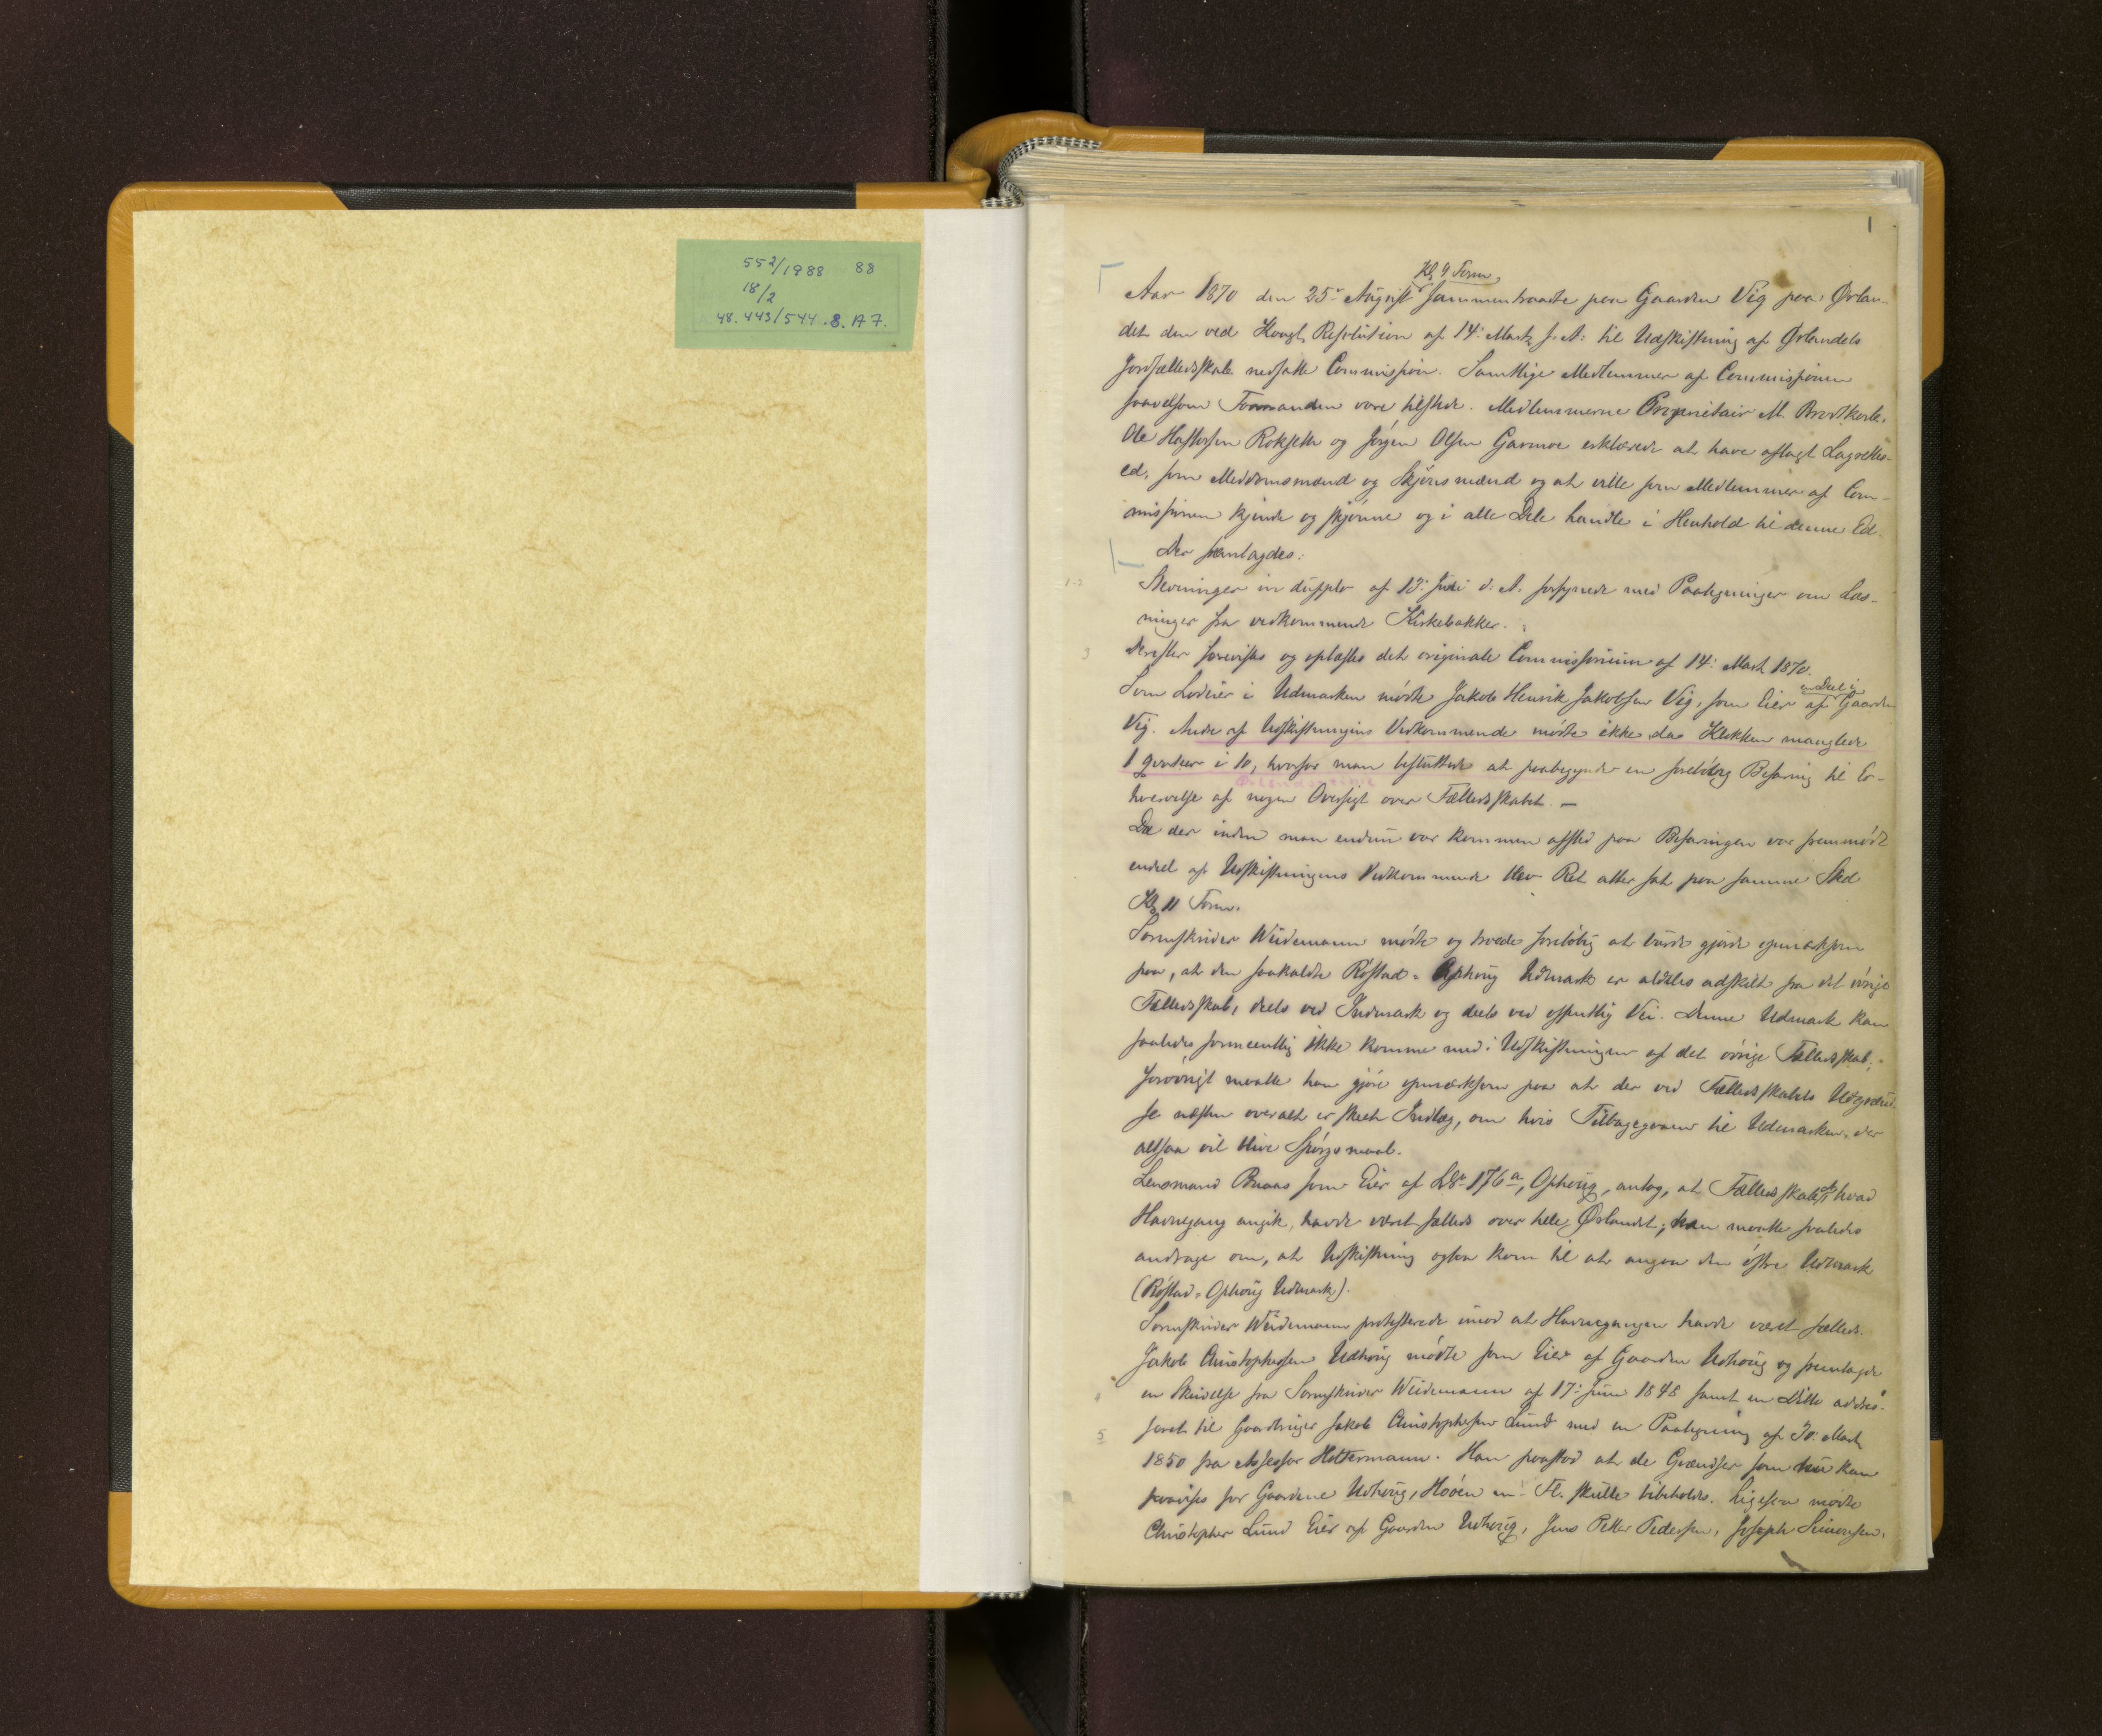 552/1988 88
18/2
48.443/544.8. A7.
1
Kl 9 Form.
Aar 1870 den 25de August sammentraadte paa Gaarden Vig paa Ørlan-
det den ved Kongl. Resolution af 14: Marts f. A: til Udskiftning af Ørlandets
Jordfælledsskab nedsatte Commission. Samtlige Medlemmer af Commissionen
saavelsom Formanden vare tilstede. Medlemmerne Proprietair M. Brodtkorb,
Ole Rokseth og Jørgen Olsen Garmoe erklærede at have aflagt Lagrettes-
ed, som Meddomsmænd og Skjønsmænd og at ville som Medlemmer af Com-
missionen kjende og skjønne og i alle Dele handle i Henhold til denne Ed.
Der fremlagdes:
1-2
Stevninger in duplo af 13: Juli d. A. forsynede med Paategninger om Læs-
ninger fra vedkommende Kirkebakker.
3
Derefter forevistes og oplæstes det originale Commissorium af 14: Marts 1870.
Som Lodeier i Udmarken mødte Jakob Henrik Jakobsen Vig, som Eier af en Deel i Gaarden
Vig. Andre af Udskiftningens Vedkommende mødte ikke da Klokken manglede
1 qvarteer i 10, hvorfor man besluttede at paabegynde en foreløbig Befaring til Er-
hvervelse af nogen Oversigt over Fælledsskabet. —
Da der inden man endnu var kommen afsted paa Befaringen var fremmødt
endeel af Udskiftningens Vedkommende blev Ret atter sat paa samme Sted
Kl 11 Form.
Sorenskriver Weidemann mødte og troede foreløbig at burde gjøre opmærksom
paa, at den saakaldte Røstad-Ophoug Udmark er aldeles adskilt fra det øvrige
Fælledsskab, deels ved Indmark og deels ved offentlig Vei. Denne Udmark kan
saaledes formeentlig ikke komme med i Udskiftningen af det øvrige Fælledsskab.
Forøvrigt maatte han gjøre opmærksom paa at der ved Fælledsskabets Udgrænd-
se næsten overalt er skeet Indlæg, om hvis Tilbagegaaen til Udmarken, der
altsaa vil blive Spørgsmaal.
Lensmand Braas som Eier af LNo 176a, Ophoug, antog, at Fælledsskabet, hvad
Havnegang angik, havde været fælleds over hele Ørlandet; han maatte saaledes
andrage om, at Udskiftning ogsaa kom til at angaa den østre Udmark
(Røstad-Ophoug Udmark).
Sorenskriver Weidemann protesterede imod at Havnegangen havde været fælleds.
Jakob Christophersen Udhoug mødte som Eier af Gaarden Udhoug og fremlagde
en Skrivelse fra Sorenskriver Weidemann af 17: Juni 1848 samt en Ditto adres-
5
seret til Gaardbruger Jakob Christophersen Lund med en Paategning af 30: Marts
1850 fra Assessor Holtermann. Han paastod at de Grændser som nu kan
paavises for Gaardene Udhoug, Hoøen m. Fl. skulle bibeholdes. Ligesaa mødte
Christopher Lund Eier af Gaarden Udhoug, Jens Petter Pedersen, Joseph Simonsen,